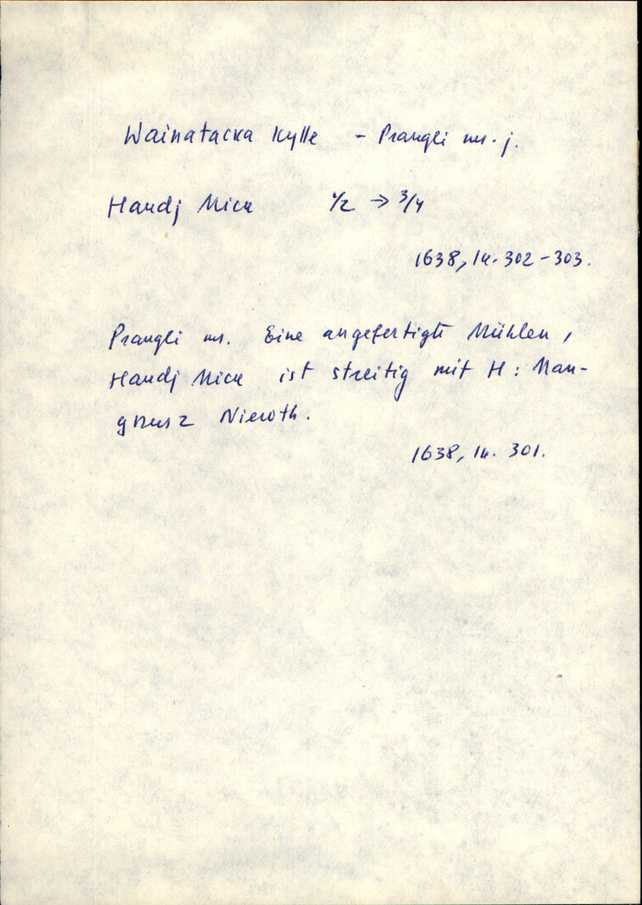 Wainatacka Kylle - Prangli ms. j.
Handj Mick 1/2 → 3/4
1638, lk. 302-303.
Prangli ms. Eine angefertigte Mühlen,
Handj Mick ist streitig mit H: Man-
gnusz Nieroth.
1638, lk. 301.